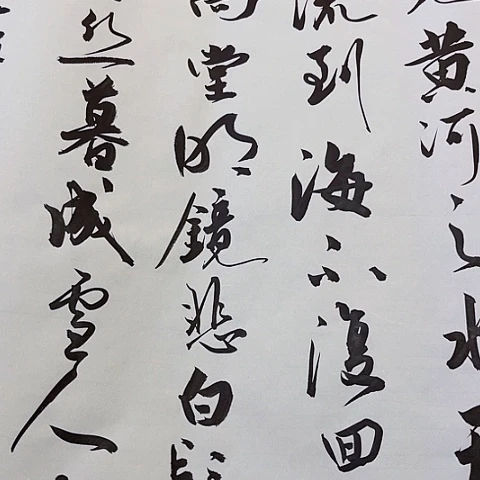 黄河之水天
流到海不復回
高堂明鏡悲白髮
丝暮成雪人